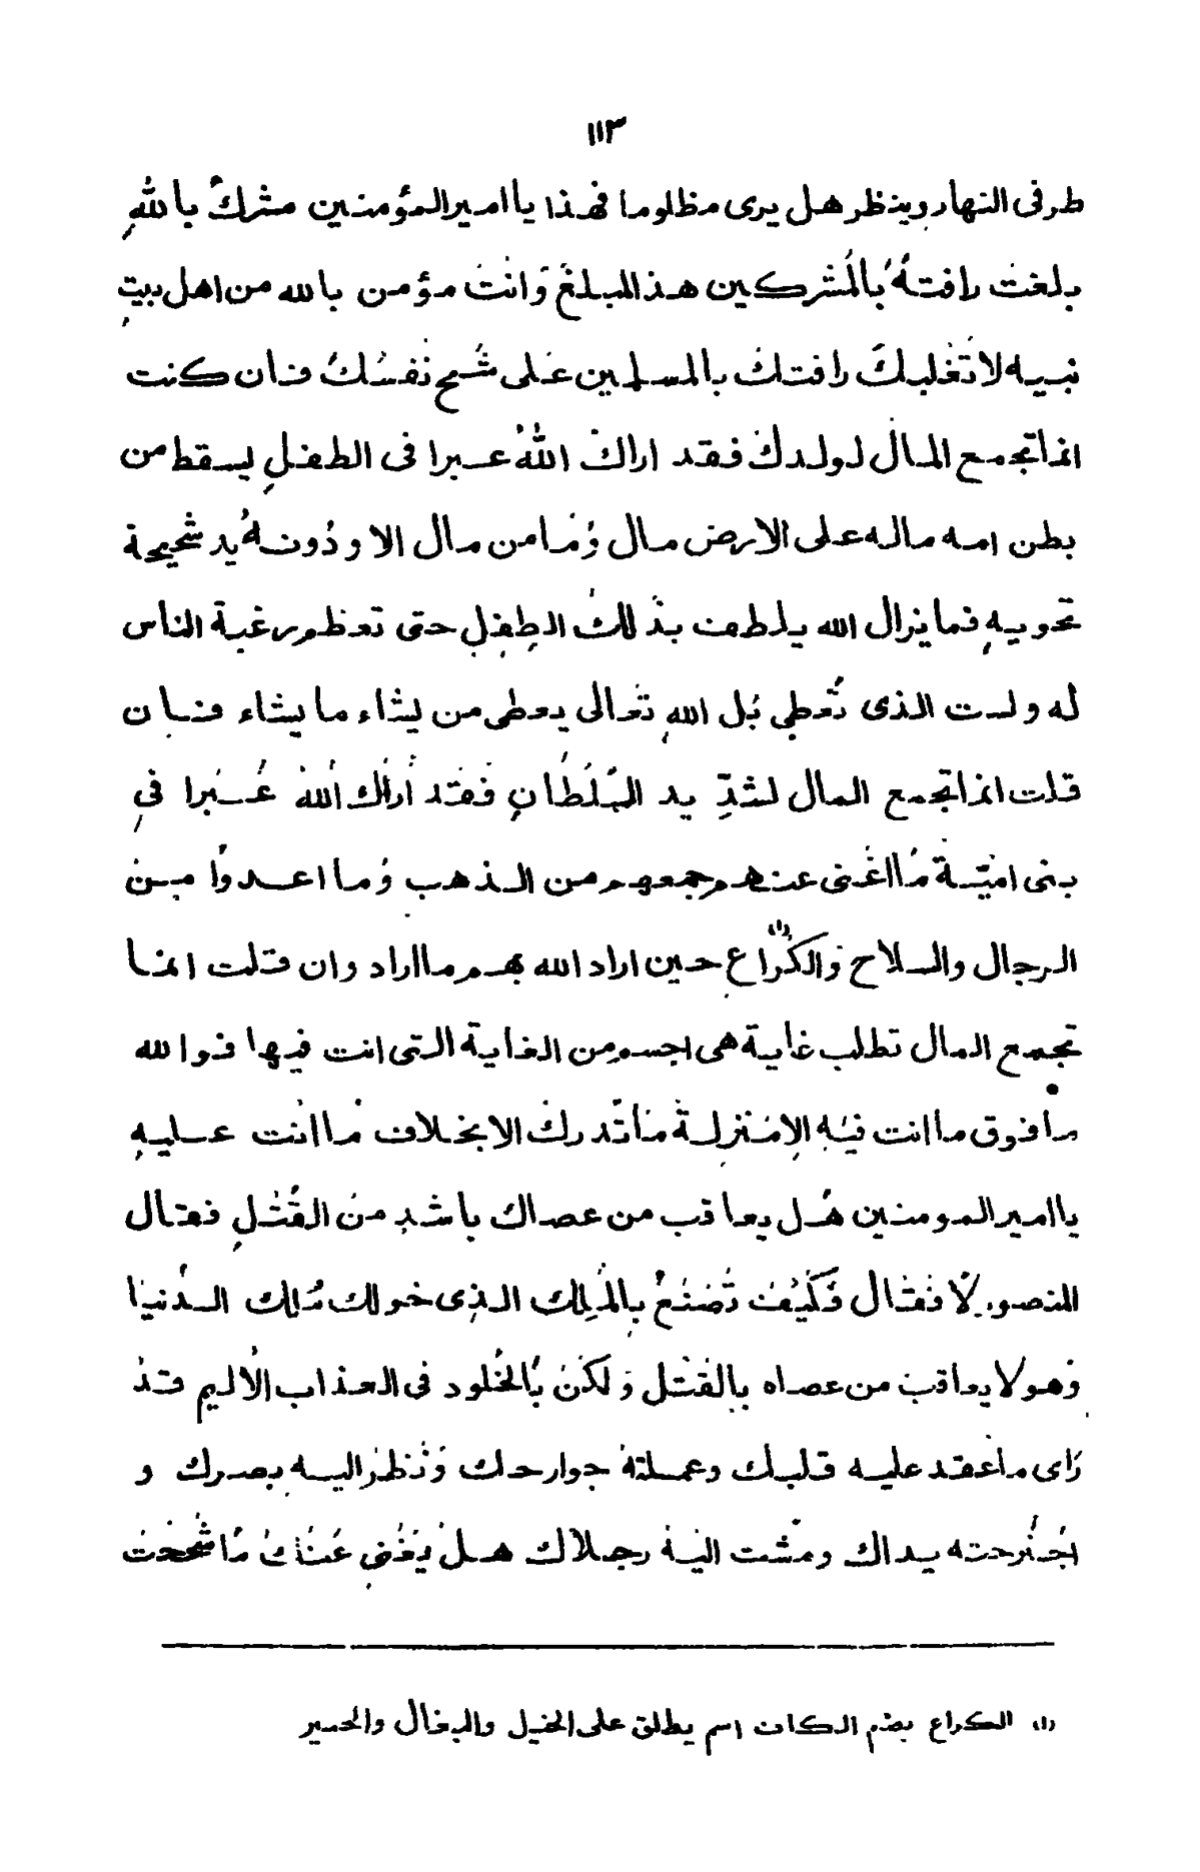 ١١٣
طرفى النهار وينظر هل يرى مظلوما فهذا يا امير المؤمنين مشرك بالله
بلغت رافته بالمشركين هذا المبلغ وانت مؤمن بالله من اهل بيت
نبيه لا تغلبك رافتك بالمسلمين على شح نفسك فان كنت
انما تجمع المال لولدك فقد اراك الله عبرا فى الطفل يسقط من
بطن امه ماله على الارض مال وما من مال الا ودونه يد شحيحة
تحويه فما يزال الله يلطف بذلك الطفل حتى تعظم رغبة الناس
له ولست الذى تعطى بل الله تعالى يعطى من يشاء ما يشاء فان
قلت انما تجمع المال لشدّ يد السّلطان فقد أراك الله عبرا فى
بنى اميّة ما اغنى عنهم جمعهم من الذهب وما اعدوا من
الرجال والسلاح والكراع (١) حين اراد الله بهم ما اراد وان قلت انما
تجمع المال تطلب غاية هى اجسم من الغاية التى انت فيها فوالله
ما فوق ما انت فيه الا منزلة ما تدرك الا بخلاف ما انت عليه
يا امير المومنين هل يعاقب من عصاك باشد من القتل فقال
المنصور لا فقال فكيف تصنع بالملك الذى خولك ملك الدنيا
وهو لا يعاقب من عصاه بالقتل ولكن بالخلود فى العذاب الاليم قد
راى ما عقد عليه قلبك وعملته جوارحك ونظر اليه بصرك و
اجترحته يداك ومشت اليه رجلاك هل يغنى عنك ما شححت
(١) الكراع بضم الكاف اسم يطلق على الخيل والبغال والحمير